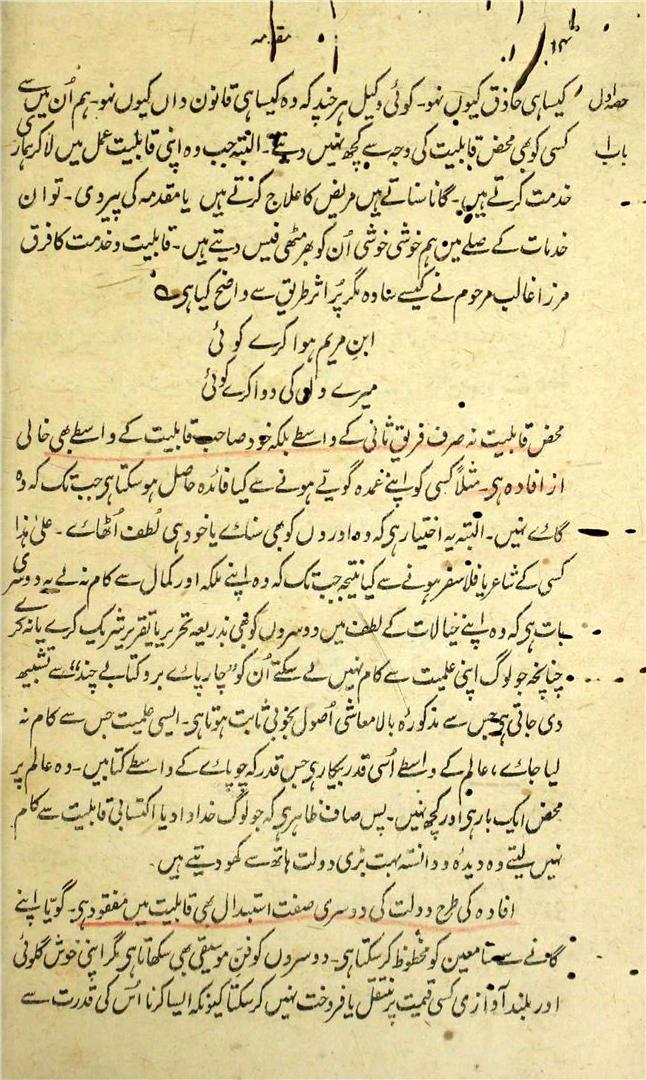 مقدمہ
حصہ اول
باب
کیسا ہی حاذق کیوں نہو۔ کوئی وکیل ہر چند کہ وہ کیسا ہی قانون داں کیوں نہو۔ ہم اُن میں سے
کسی کو بھی محض قابلیت کی وجہ سے کچھ نہیں دیتے۔ البتہ جب وہ اپنی قابلیت عمل میں لا کر ہماری
خدمت کرتے ہیں۔ گانا سناتے ہیں مریض کا علاج کرتے ہیں یا مقدمہ کی پیروی۔ تو ان
خدمات کے صلے میں ہم خوشی خوشی اُن کو بھر مٹھی فیس دیتے ہیں۔ قابلیت و خدمت کا فرق
مرزا غالب مرحوم نے کیسے سادہ مگر پُر اثر طریق سے واضح کیا ہی۔
ابنِ مریم ہوا کرے کوئی
میرے دل کی دوا کرے کوئی
محض قابلیت نہ صرف فریق ثانی کے واسطے بلکہ خود صاحب قابلیت کے واسطے بھی خالی
از افادہ ہی۔ مثلاً کسی کو اپنے عمدہ گویّے ہونے سے کیا فائدہ حاصل ہو سکتا ہی جب تک کہ وہ
گاۓ نہیں۔ البتہ یہ اختیار ہی کہ وہ اوروں کو بھی سناۓ یا خود ہی لُطف اُٹھاۓ۔ علیٰ ہذا
کسی کے شاعر یا فلاسفر ہونے سے کیا نتیجہ جب تک کہ وہ اپنے ملکہ اور کمال سے کام نہ لے یہ دوسری
بات ہی کہ وہ اپنے خیالات کے لطف میں دوسروں کو بھی بذریعہ تحریر یا تقریر شریک کرے یا نہ کرے
چنانچہ جو لوگ اپنی علمیت سے کام نہیں لے سکتے اُن کو ”چارپاۓ بروکتابے چند“ سے تشبیہ
دی جاتی ہی جس سے مذکورۂ بالا معاشی اُصول بخوبی ثابت ہوتا ہی۔ ایسی علمیت جس سے کام نہ
لیا جاۓ، عالم کے واسطے اُسی قدر بیکار ہی جس قدر کہ چوپاۓ کے واسطے کتابیں۔ وہ عالم پر
محض ایک بار ہی اور کچھ نہیں۔ پس صاف ظاہر ہی کہ جو لوگ خداداد یا اکتسابی قابلیت سے کام
نہیں لیتے وہ دیدہ و دانستہ بہت بڑی دولت ہاتھ سے کھو دیتے ہیں۔
افادہ کی طرح دولت کی دوسری صفت استبدال بھی قابلیت میں مفقود ہی۔ گویّا اپنے
گانے سے سامعین کو محظوظ کر سکتا ہی۔ دوسروں کو فنِ موسیقی بھی سکھاتا ہی مگر اپنی خوش گلوئی
اور بلند آوازی کسی قیمت پر منتقل یا فروخت نہیں کر سکتا کیونکہ ایسا کرنا اس کی قدرت سے